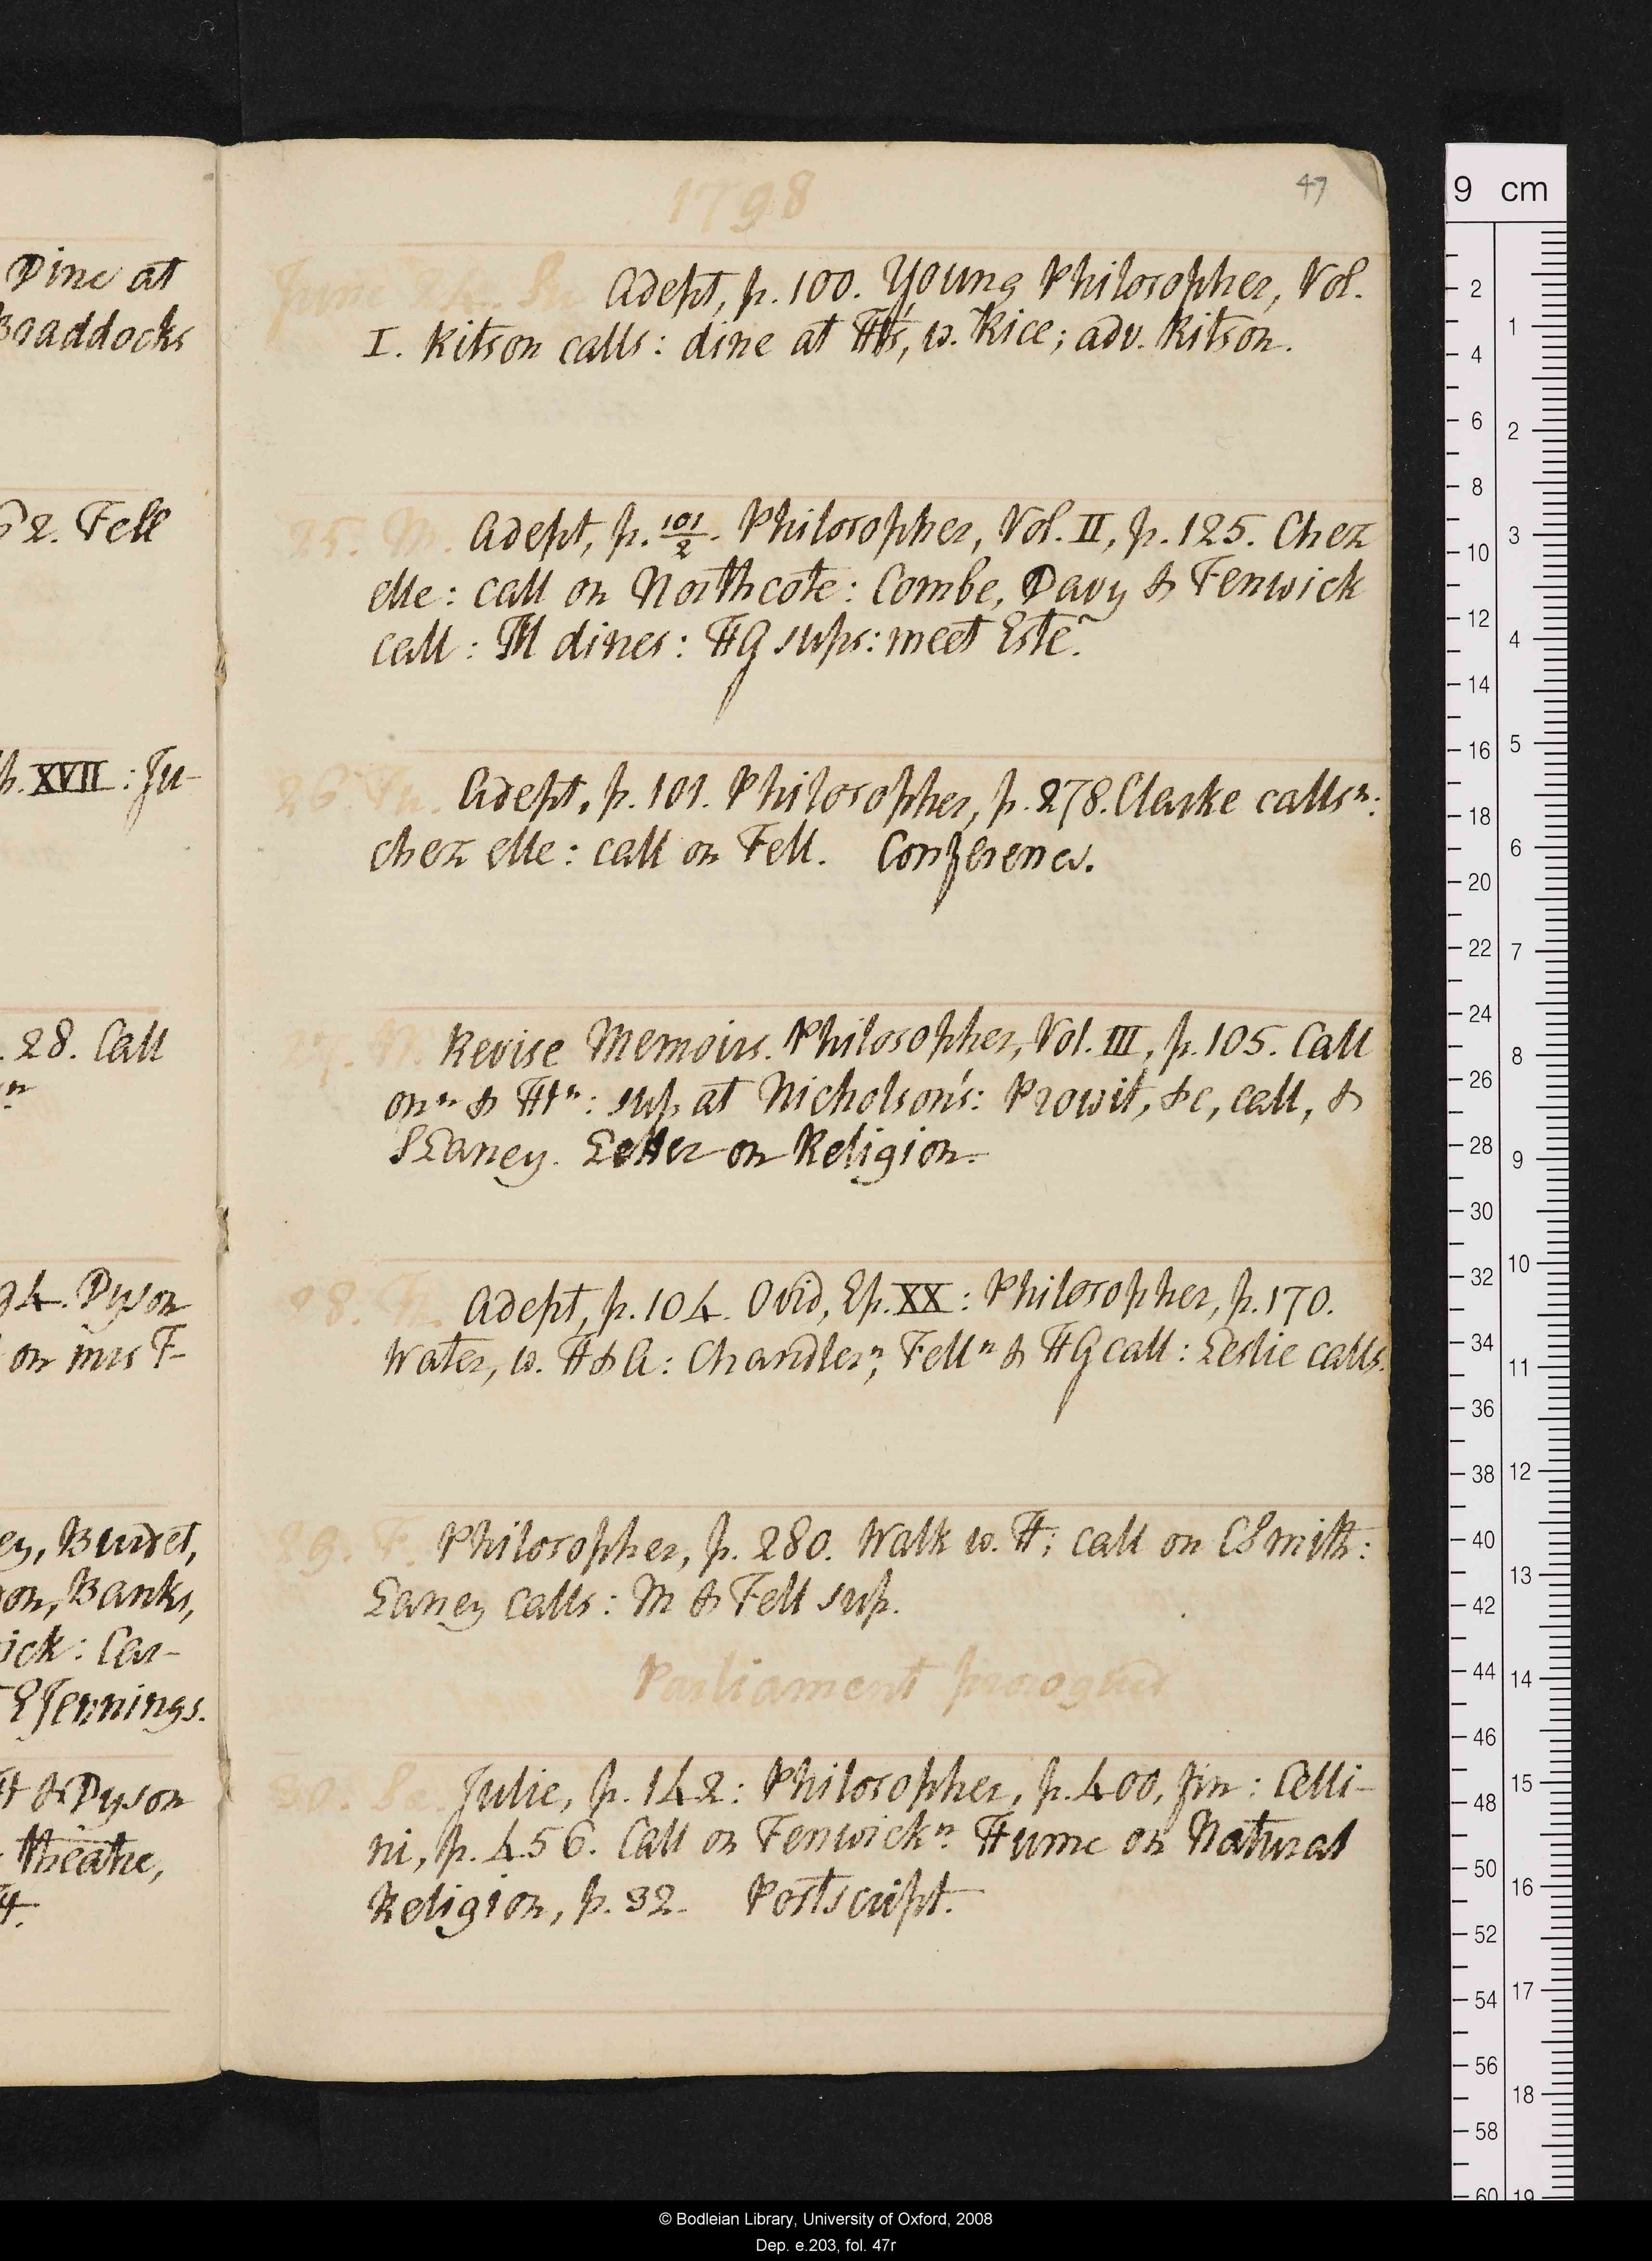 Dine at
Braddocks
62. Fell
p. XVII: Ju-
. 28. Call
n
94. Dyson
on mrs F-
ey, Burdet,
on, Banks,
ick: Car-
EJennings.
Ht & Dyson
theatre,
Ht.
1798
47
June 24. Su. Adept, p. 100. Young Philosopher, Vol.
I. Ritson calls: dine at Ht's, w. Rice; adv. Ritson.
25. M. Adept, p. 101/2. Philosopher, Vol. II, p. 125. Chez
elle: call on Northcote: Combe, Davy & Fenwick
call: M dines: HG sups: meet Este~.
26. Tu. Adept, p. 101. Philosopher, p. 278. Clarke calls n:
chez elle: call on Fell. Conference.
27. W. Revise Memoirs. Philosopher, Vol. III, p. 105. Call
on n & Ht n: sup at Nicholson's: Prowit, &c, call, &
SLaney. Letter on Religion.
28. Th. Adept, p. 104. Ovid, Ep. XX: Philosopher, p. 170.
Water, w. H & A: Chandler n, Fell n & HG call: Leslie calls.
29. F. Philosopher, p. 280. Walk w. H; call on CSmith:
Laney calls: M & Fell sup.
Parliament prorogued
30. Sa. Julie, p. 142: Philosopher, p. 400, fin: Celli-
ni, p. 456. Call on Fenwick n. Hume on Natural
Religion, p. 32. Postscript.
9 cm
2
4
6
8
10
12
14
16
18
20
22
24
26
28
30
32
34
36
38
40
42
44
46
48
50
52
54
56
58
60
1
2
3
4
5
6
7
8
9
10
11
12
13
14
15
16
17
18
19
© Bodleian Library, University of Oxford, 2008
Dep. e.203, fol. 47r